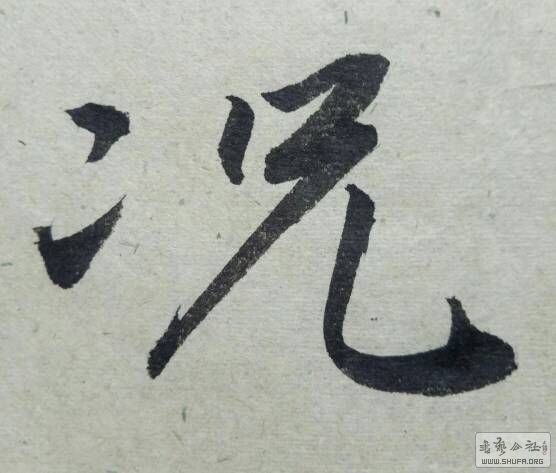 况
书艺公社
WWW.SHUFA.ORG